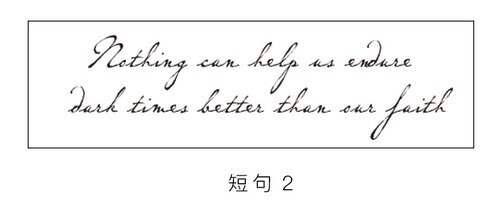 Nothing can help us endure
dark times better than our faith
短句 2